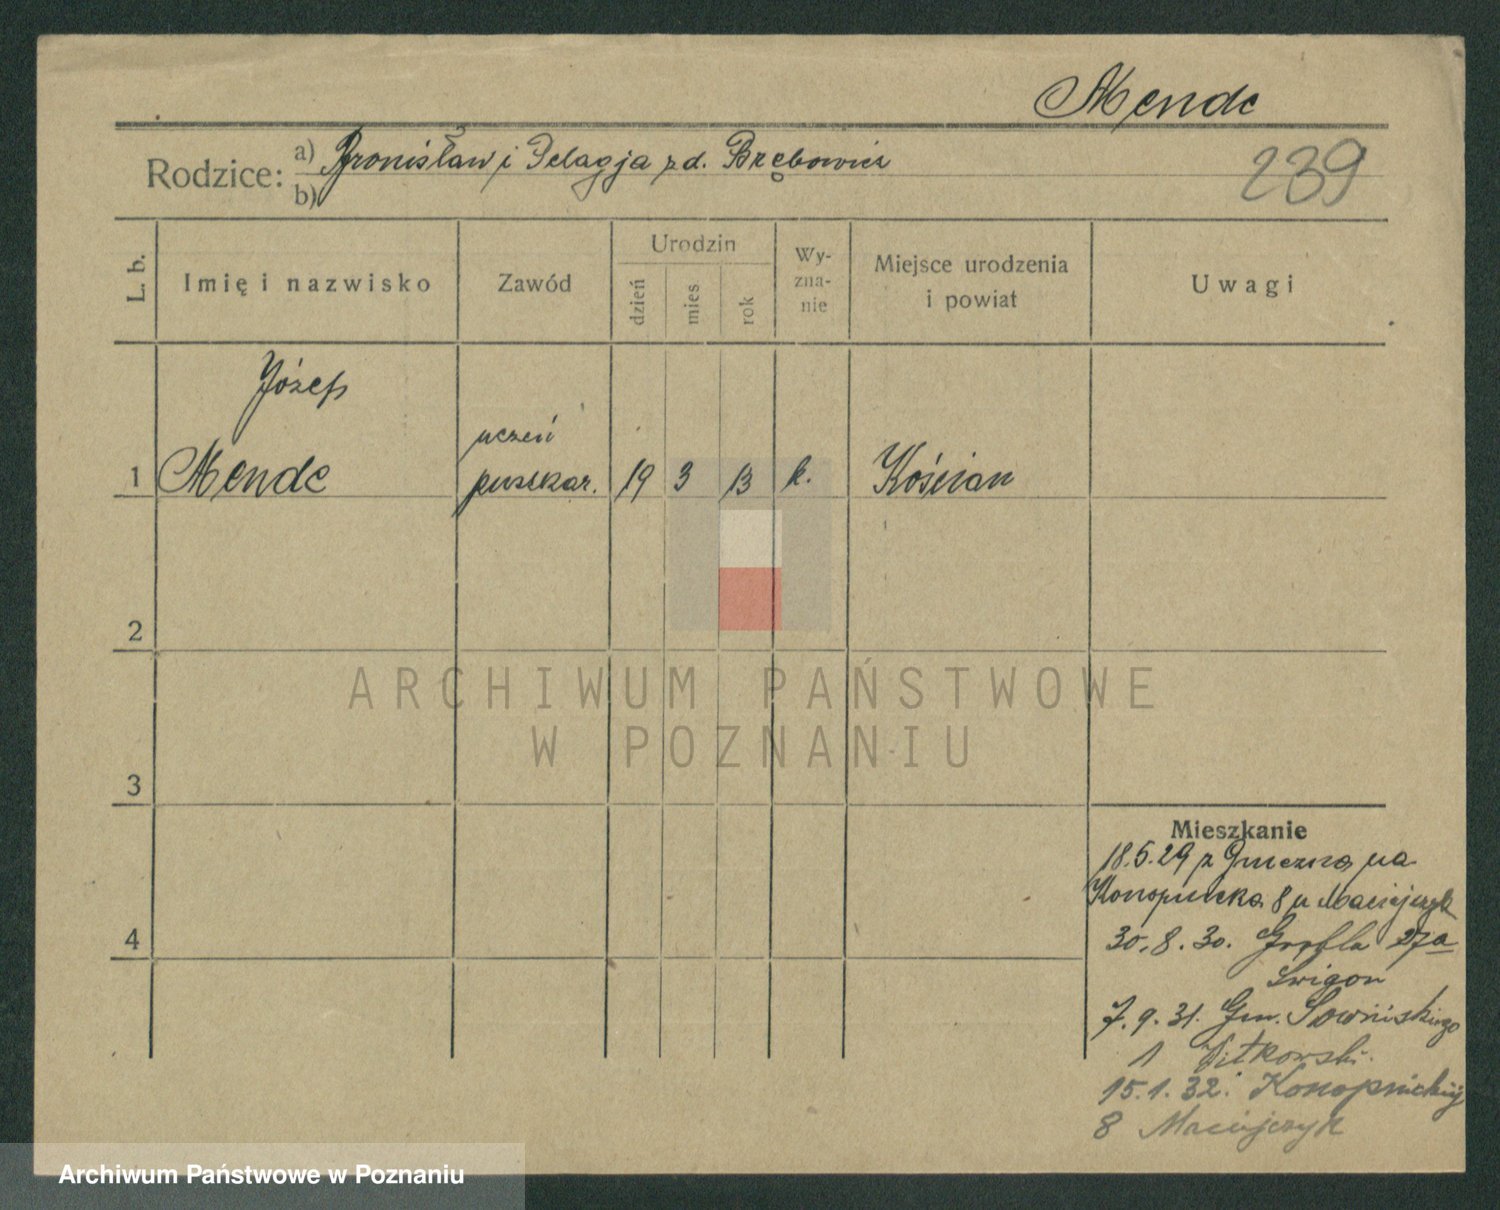 Mende
Rodzice: a) Bronisław i Pelagja z d. Brębowicz
b)
239
L. b.
Imię i nazwisko
Zawód
Urodzin
dzień
mies
rok
Wy-
zna-
nie
Miejsce urodzenia
i powiat
Uwagi
Józef
uczeń
1 Mende puszkar. 19 3 13 k. Kościan
2
3
4
ARCHIWUM PAŃSTWOWE
W POZNANIU
Mieszkanie
18.5.29 z Gniezna na
Konopnicka 8 u Maciejczyk
30.8.30. 27a
7.9.31. Gen. Sowińskiego
1 Witkowski.
15.1.32. Konopnickiej
8 Maciejczyk
Archiwum Państwowe w Poznaniu